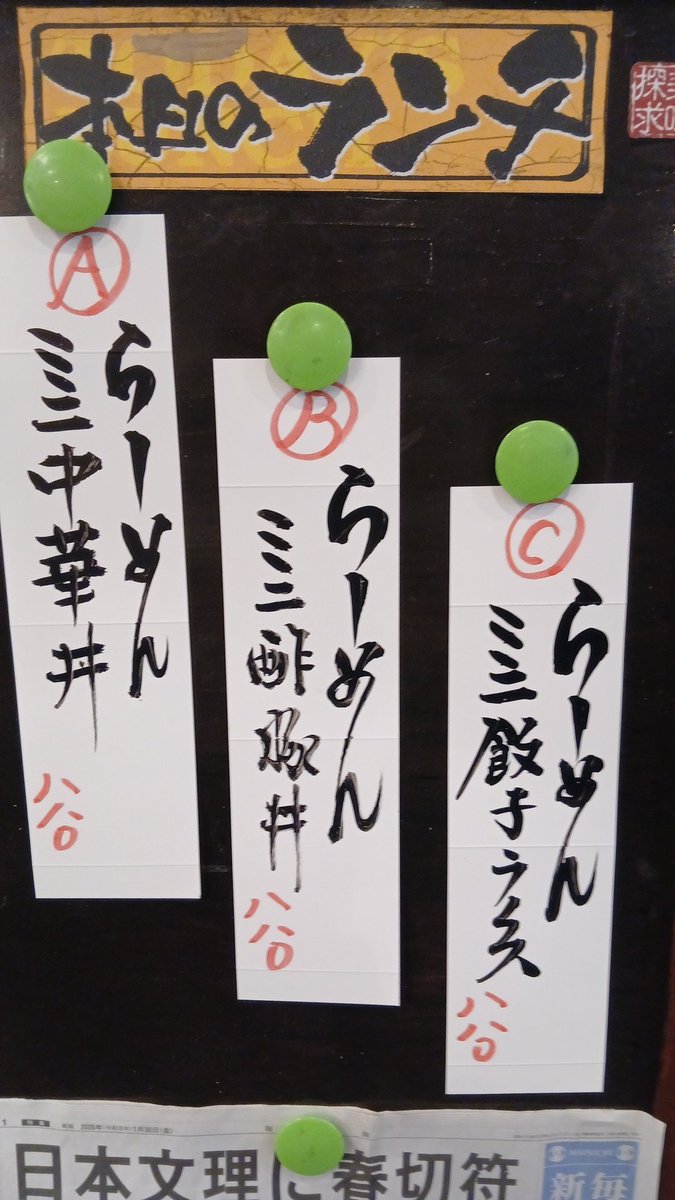 本日のランチ
探求
A
らーめん
ミニ中華丼
八八〇
B
らーめん
ミニ酢豚丼
八八〇
C
らーめん
ミニ餃子ライス
八八〇
1月30日(金)
日本文理に春切符
MAINICHI
毎
新